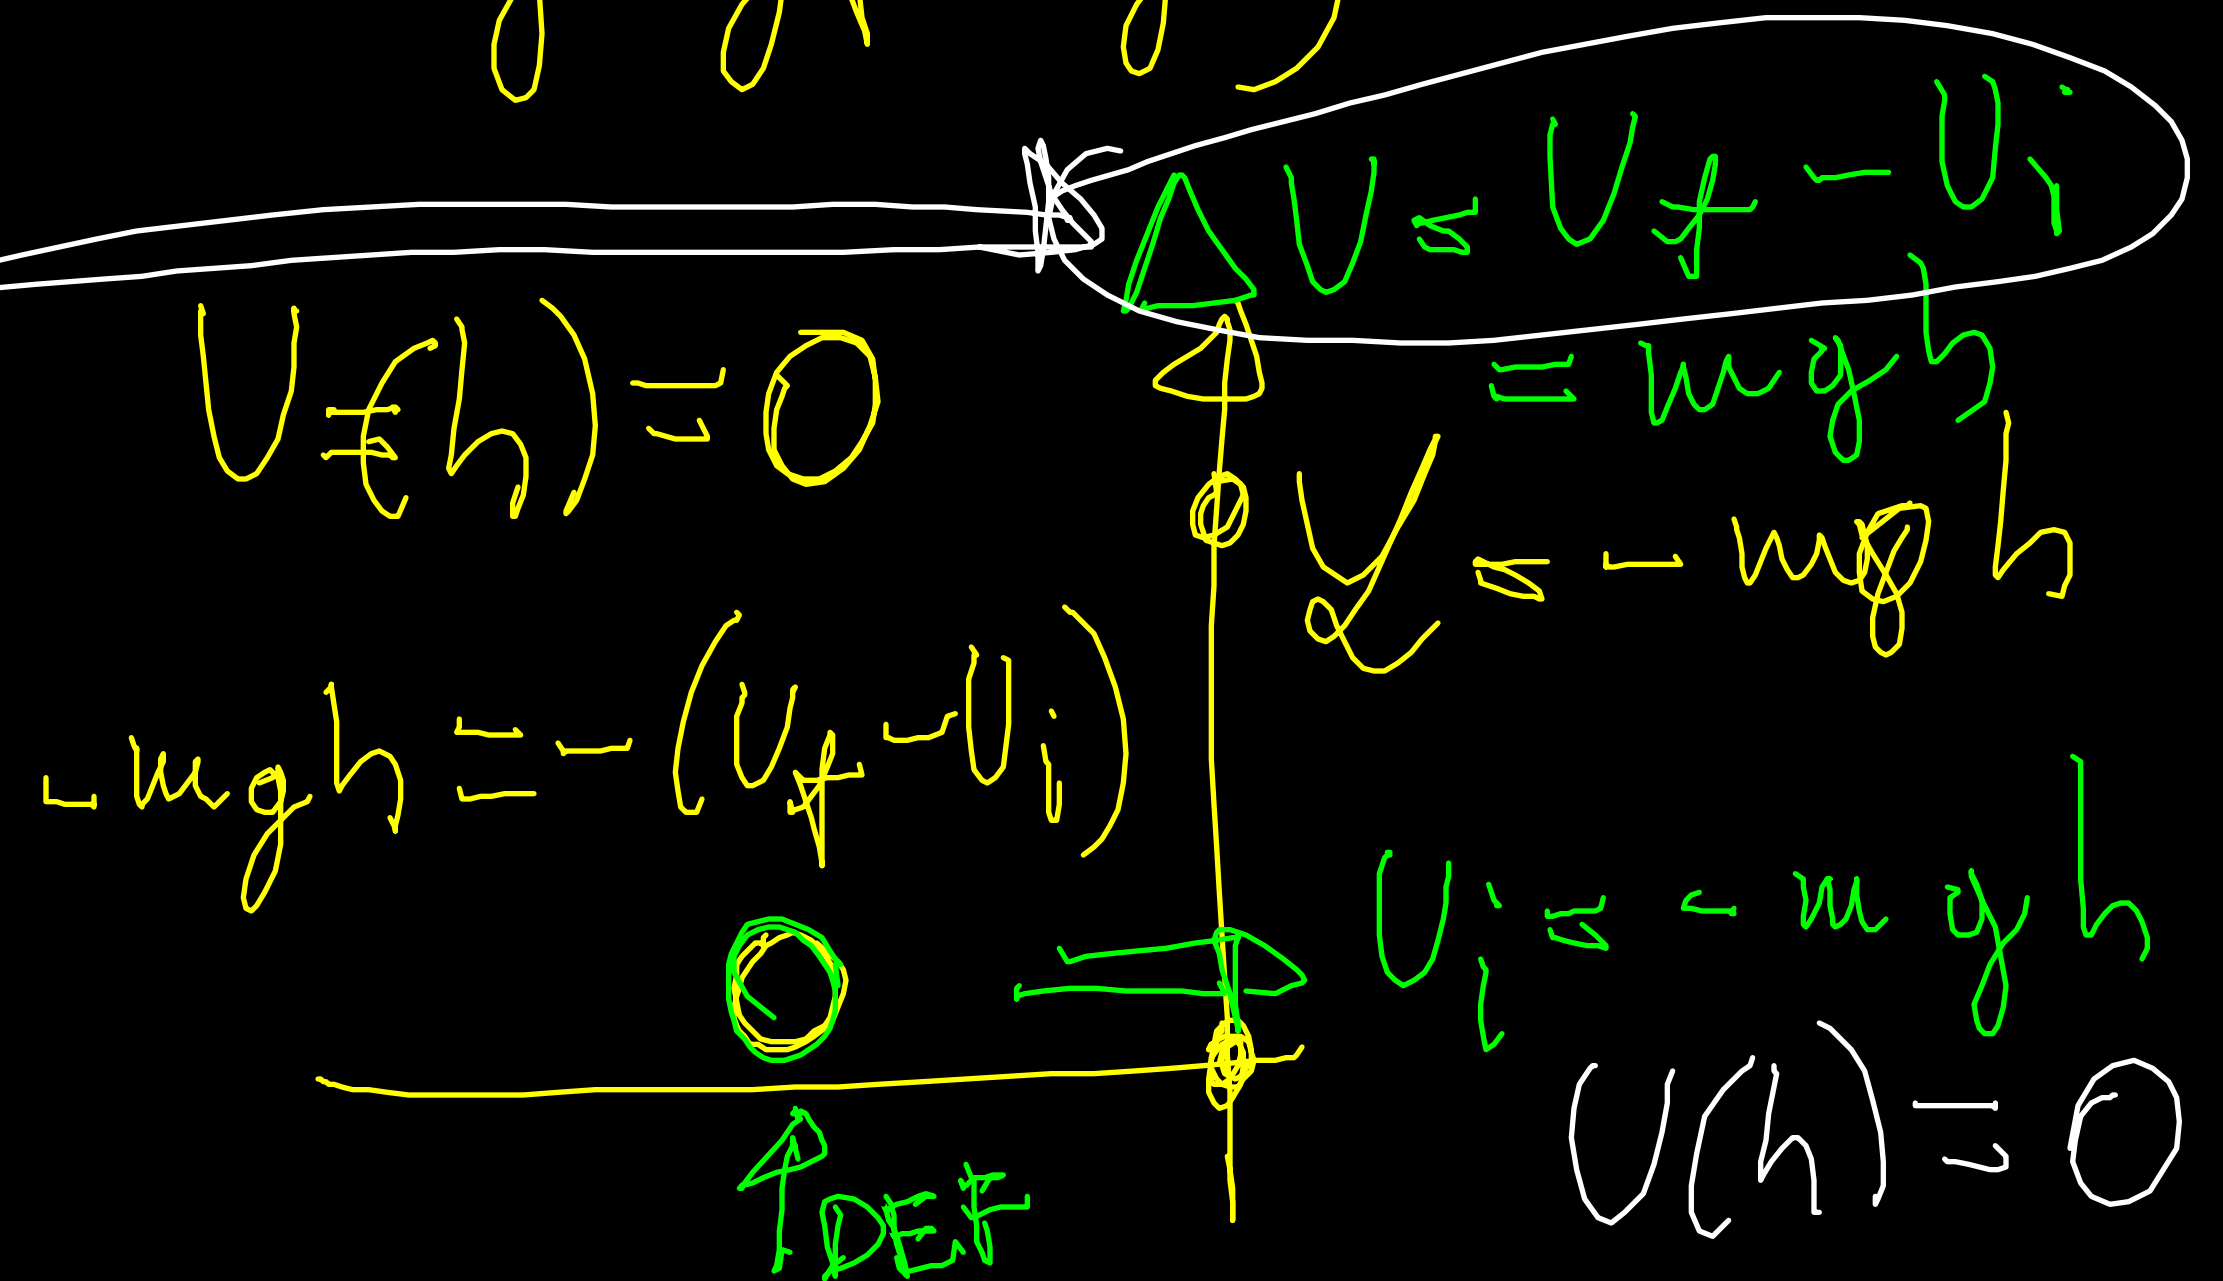 ΔU = Uf - Ui
U(h) = 0
= mgh
L = - mgh
- mgh = - (Uf - Ui)
Ui = - mgh
U(h) = 0
DEF